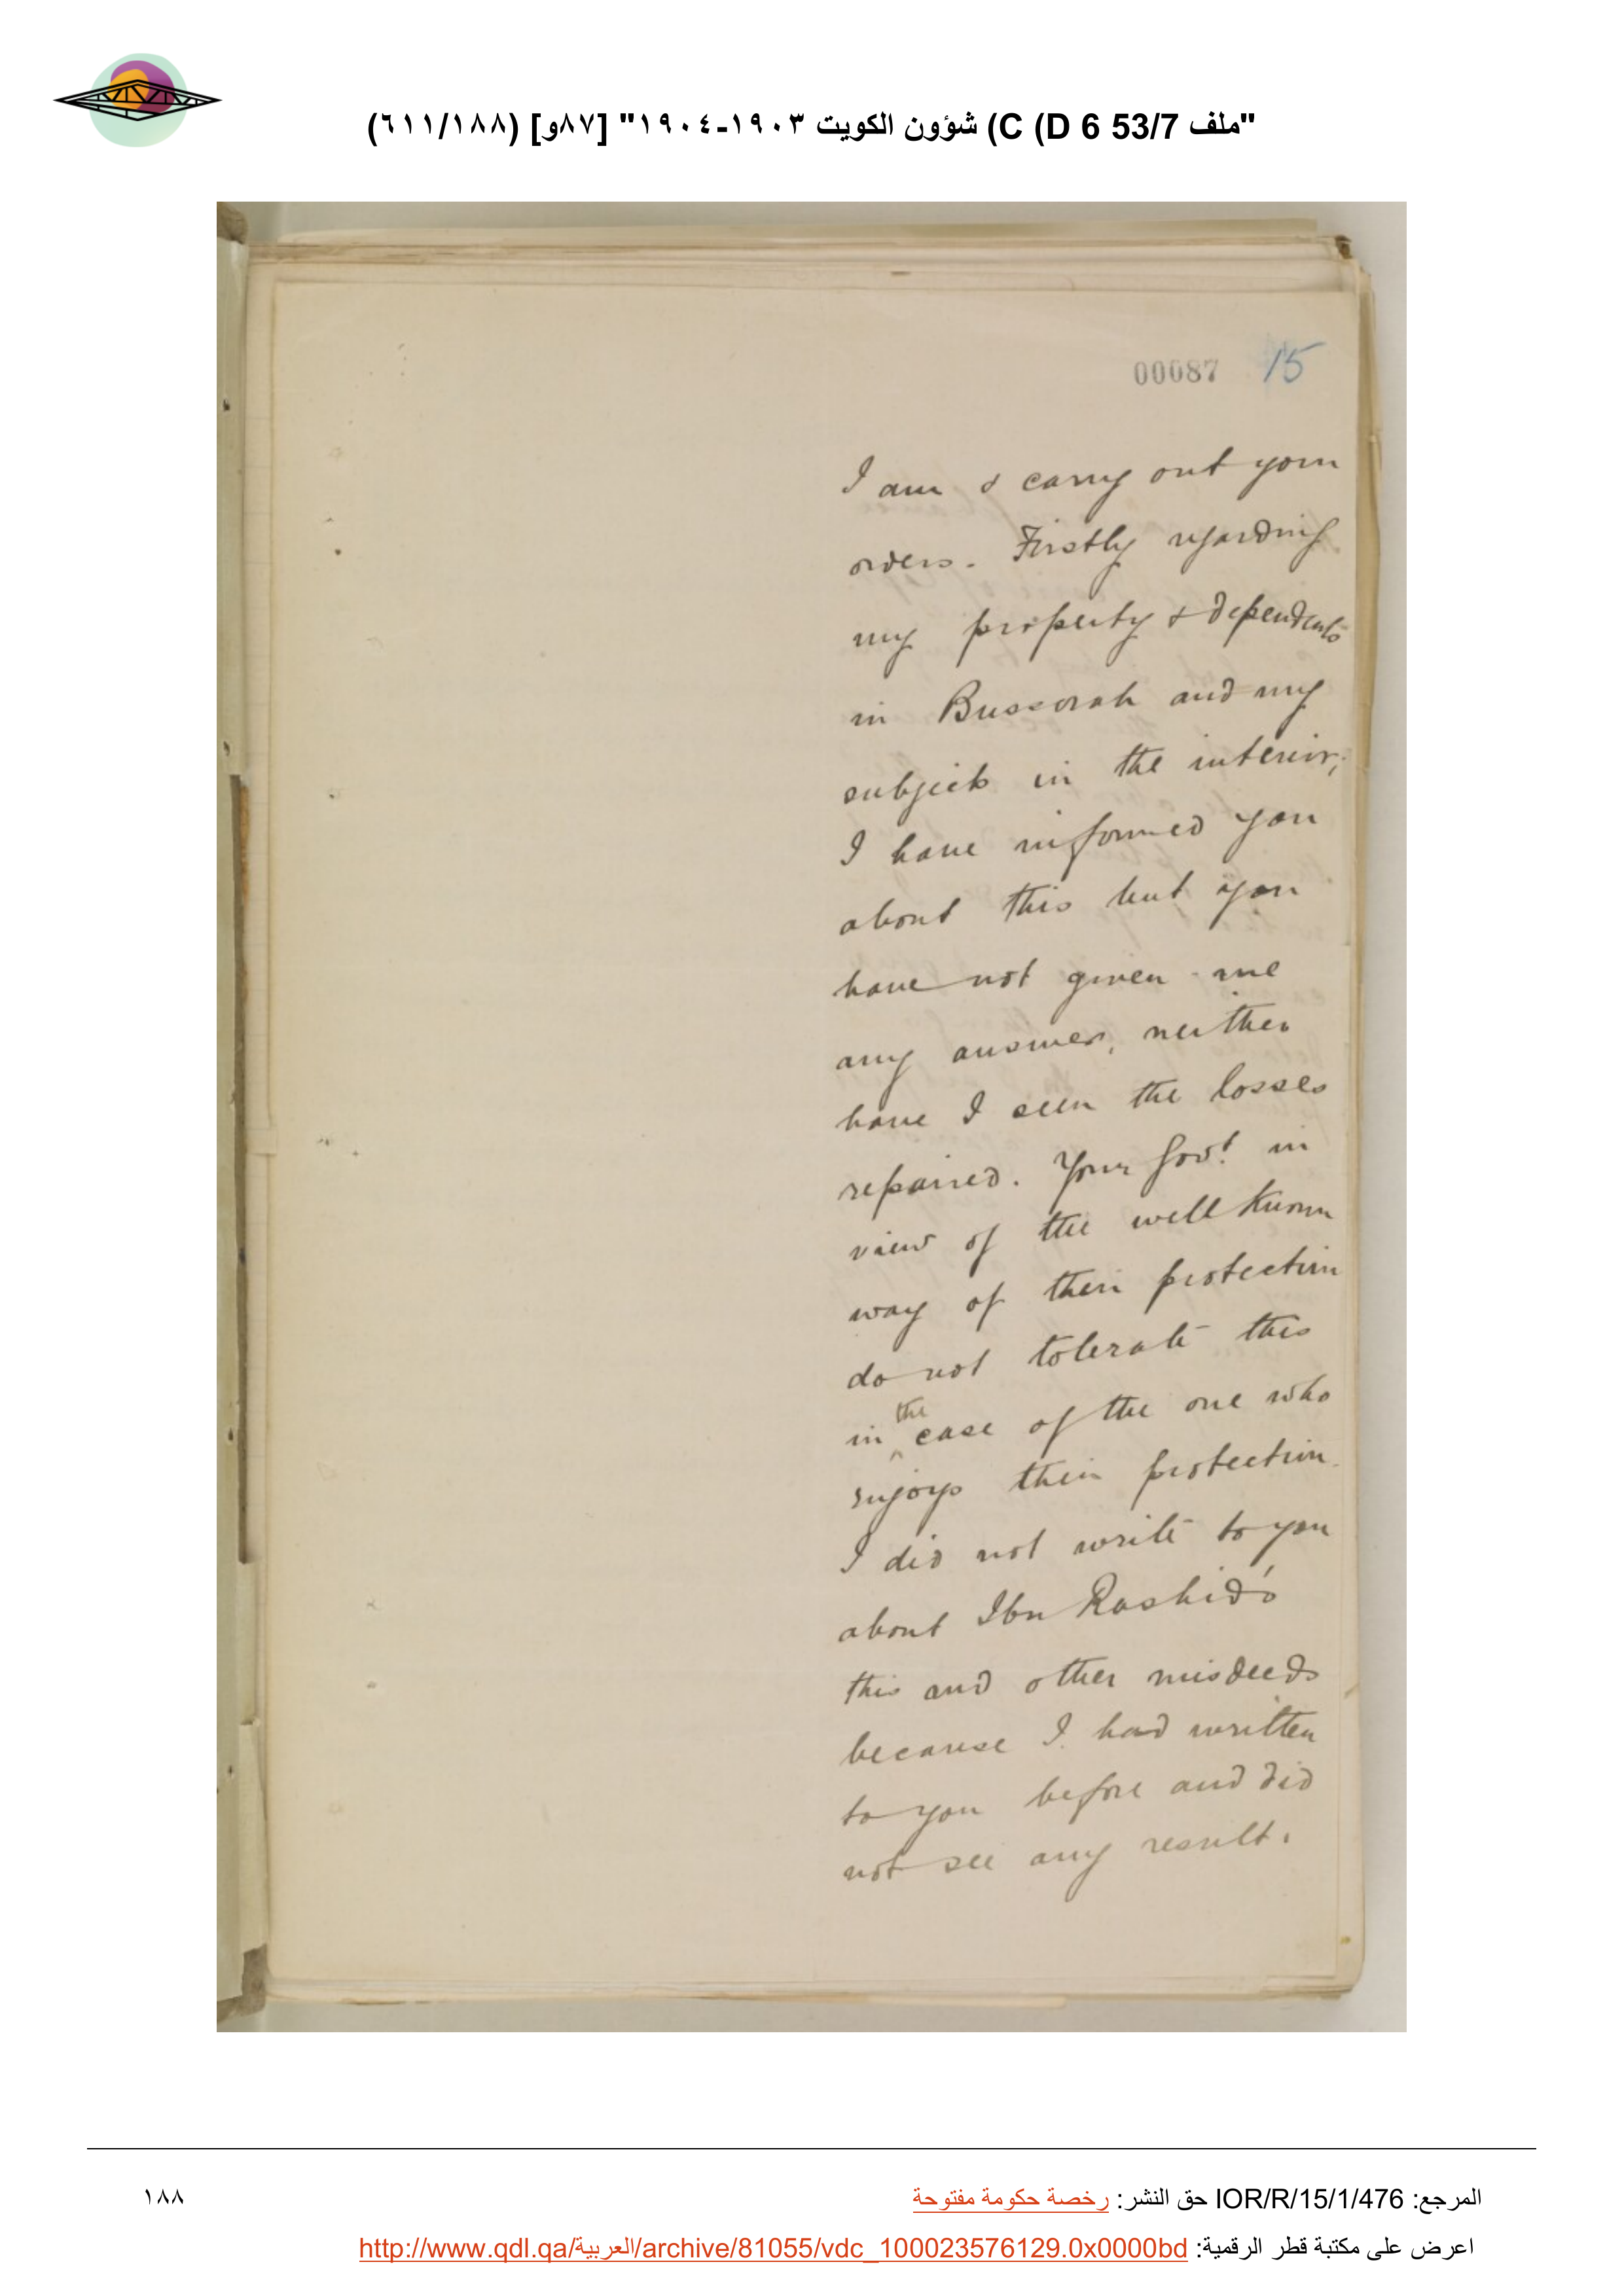 "ملف 53/7 C (D 6) شؤون الكويت ١٩٠٣-١٩٠٤" [٨٧و] (٦١١/١٨٨)
00087 15
I am & carry out your
orders. Firstly regarding
my property & dependents
in Bussorah and my
subjects in the interior;
I have informed you
about this but you
have not given me
any answer, neither
have I seen the losses
repaired. Your Govt. in
view of the well known
way of their protection
do not tolerate this
in the case of the one who
enjoys their protection.
I did not write to you
about Ibn Rashid's
this and other misdeeds
because I had written
to you before and did
not see any result.
المرجع: IOR/R/15/1/476 حق النشر: رخصة حكومة مفتوحة
١٨٨
اعرض على مكتبة قطر الرقمية: http://www.qdl.qa/العربية/archive/81055/vdc_100023576129.0x0000bd